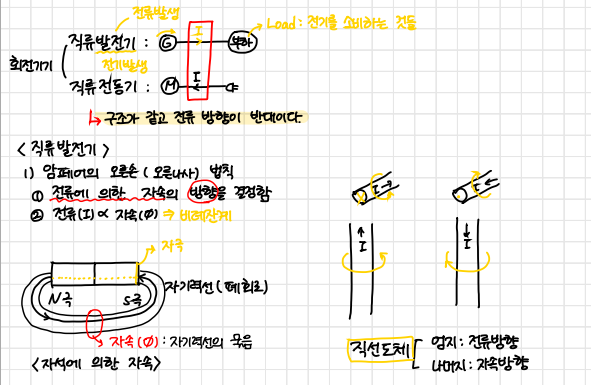 전류발생
Load : 전기를 소비하는 것들
직류발전기 : G I 부하
회전기기
전기발생
직류전동기 : M I
구조가 같고 전류 방향이 반대이다.
<직류발전기>
1) 암페어의 오른손 (오른나사) 법칙
① 전류에 의한 자속의 방향을 결정함
② 전류(I) ∝ 자속(Φ) ⇒ 비례관계
I
I
I
I
자극
자기력선 (폐회로)
N극 S극
자속(Φ) : 자기력선의 묶음
<자석에 의한 자속>
직선도체
엄지 : 전류방향
나머지 : 자속방향